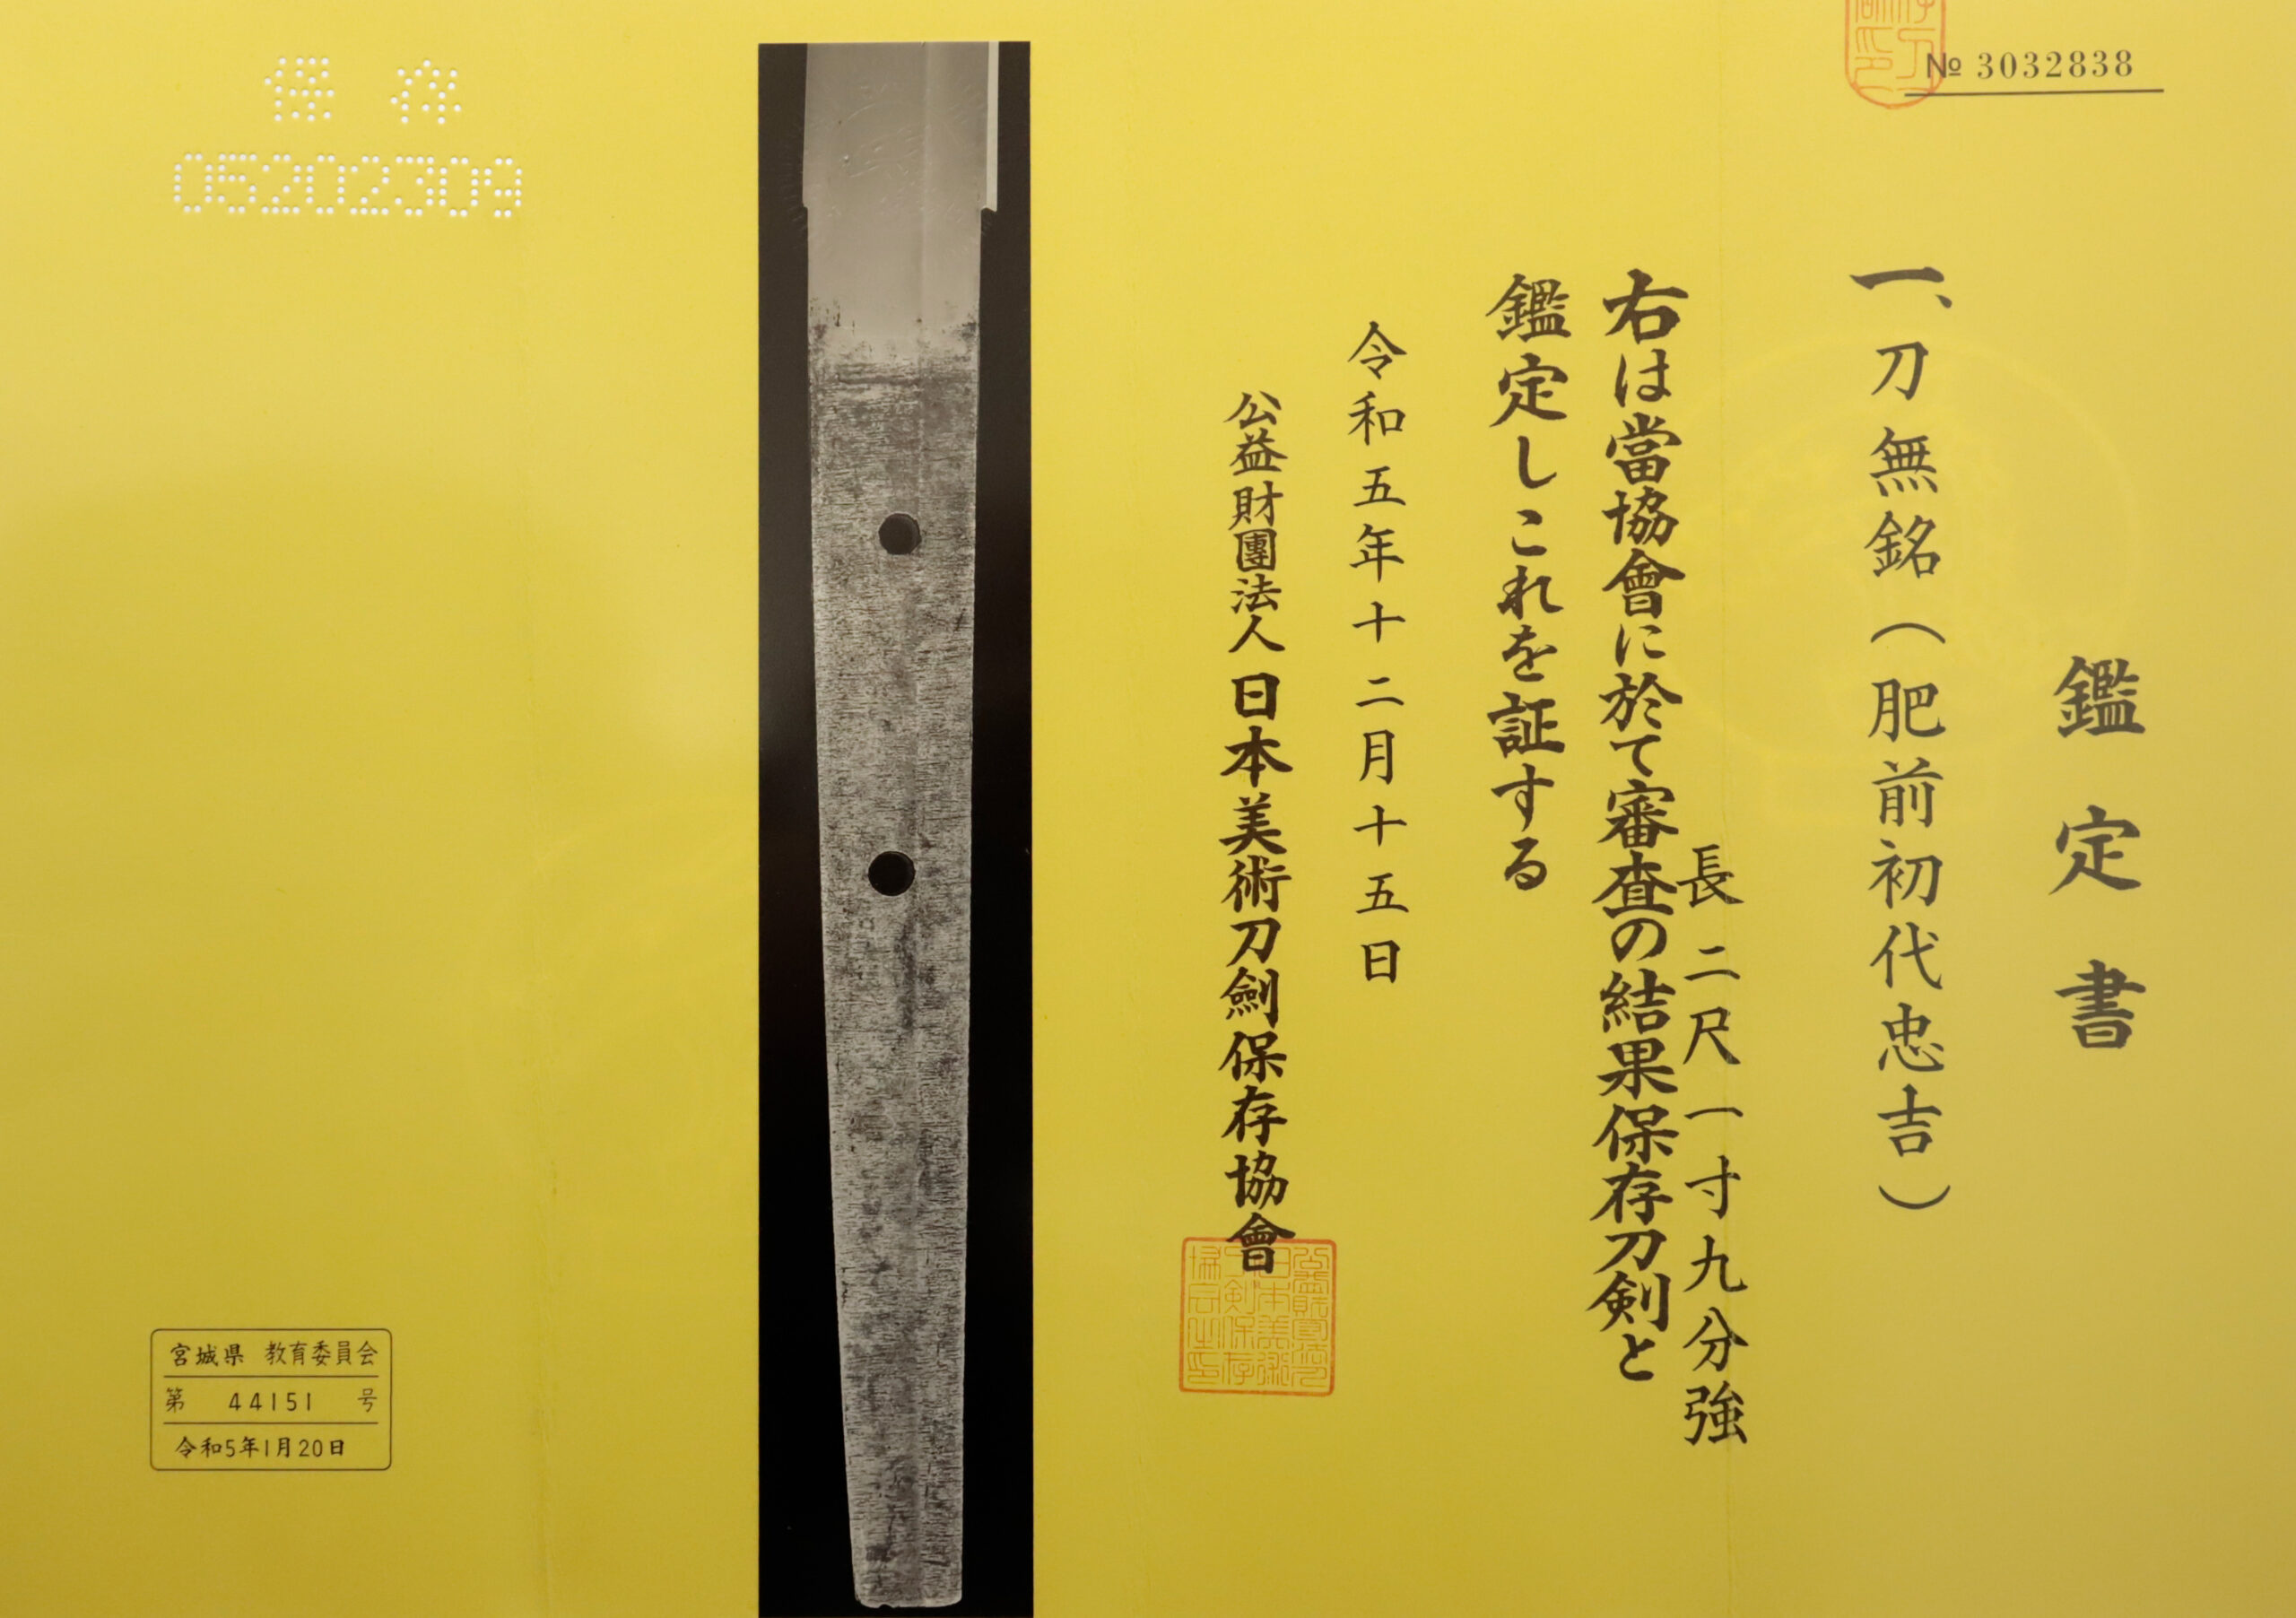 № 3032838
鑑定書
一、刀 無銘（肥前初代忠吉）
長 二尺一寸九分強
右は當協會に於て審査の結果保存刀剣と
鑑定しこれを証する
令和五年十二月十五日
公益財團法人 日本美術刀劍保存協會
保存
05202309
宮城県 教育委員会
第 44151 号
令和5年1月20日